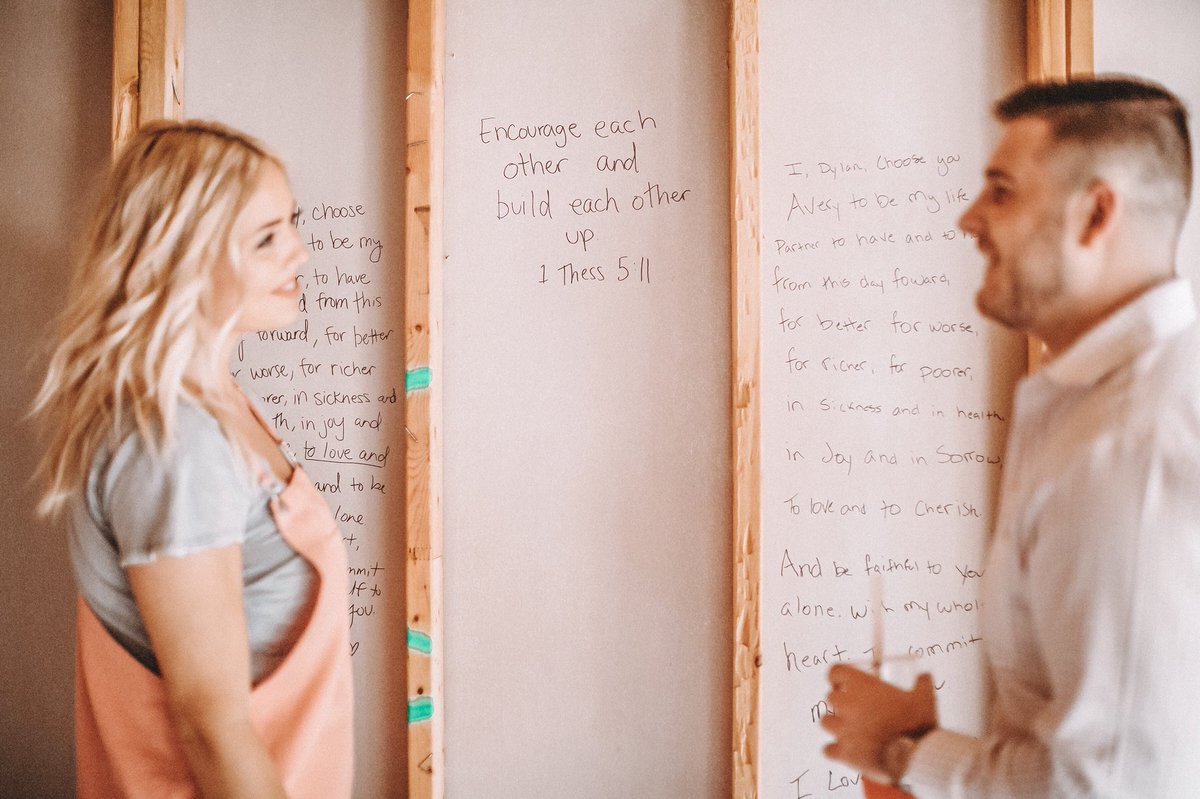 choose
to be my
to have
from this
forward, for better
worse, for richer
in sickness and
in joy and
to love and
and to be
you.
Encourage each
other and
build each other
up
1 Thess 5:11
I, Dylan, Choose you
Avery to be my life
Partner to have and to
from this day foward,
for better for worse,
for richer, for poorer,
in Sickness and in health,
in Joy and in Sorrow,
To love and to Cherish.
And be faithful to you
alone. with my
heart. I commit
I Love